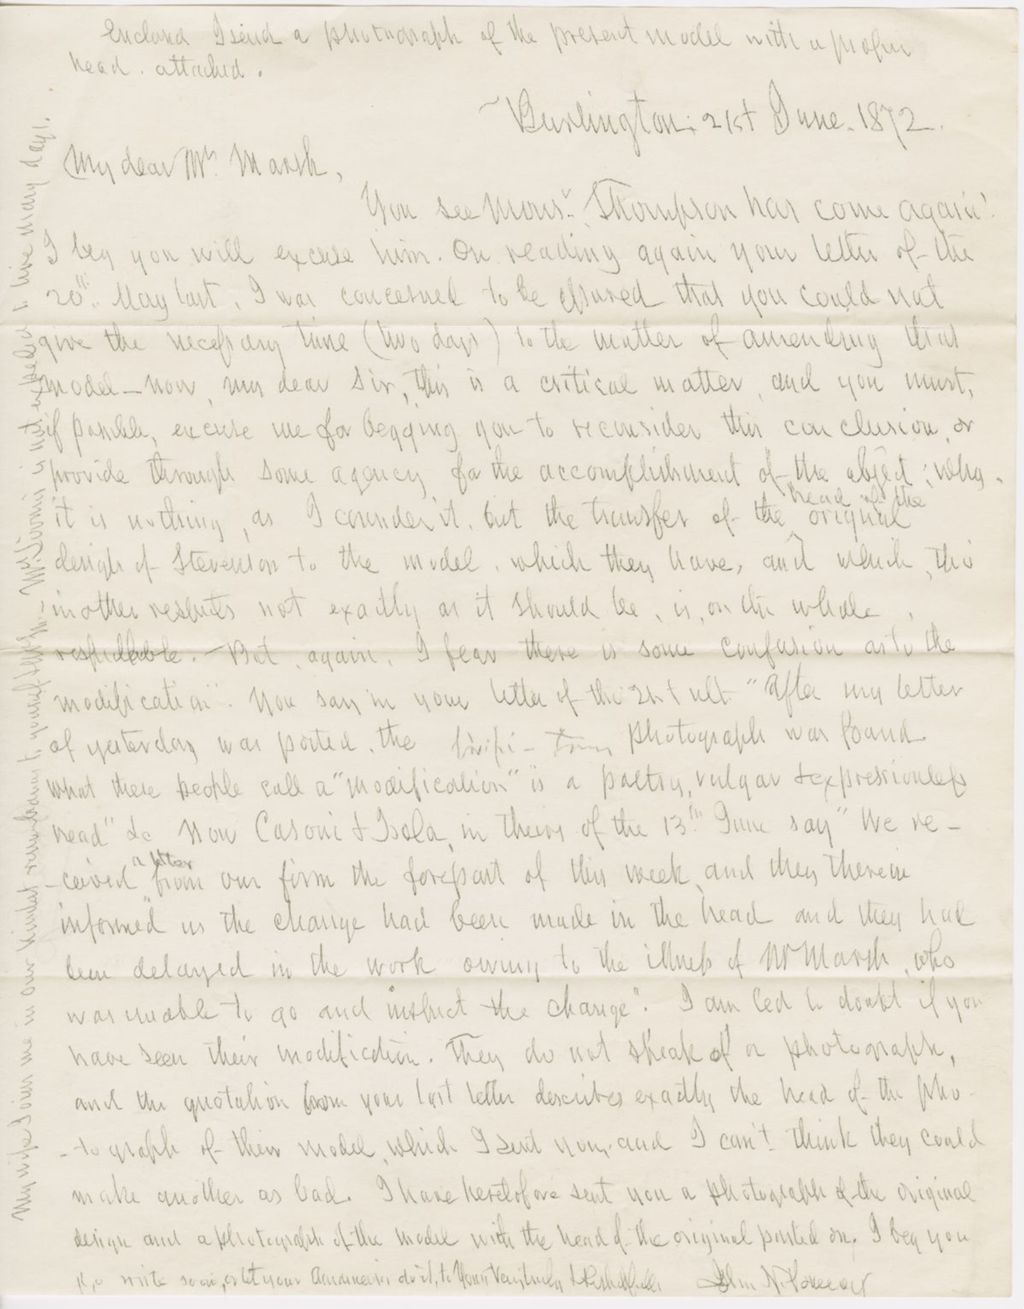 Enclosed I send a photograph of the present model with a
head attached.
Burlington. 21st June. 1872.
My dear Mr. Marsh,
You see Monsr. Thompson has come again!
I beg you will excuse him. On reading again your letter of the
20th. May last, I was concerned to be assured that you could not
give the necessary time (two days) to the matter of amending that
model – now, my dear Sir, this is a critical matter, and you must,
if possible, excuse me for begging you to reconsider this conclusion, or
provide through some agency for the accomplishment of the object;
it is nothing, as I consider it, but the transfer of the head of the original
design of Stevenson to the model, which they have, and which, tho'
in other respects not exactly as it should be, is, on the whole,
respectable. – But, again, I fear there is some confusion as to the
"modification". You say in your letter of the 21st ult "After my letter
of yesterday was posted, the photograph was found
what these people call a "modification" is a vulgar & expressionless
head" &c Now Casoni & Isola, in theirs of the 13th June say "We re-
-ceived a letter from our firm the forepart of this week, and they therein
informed us the change had been made in the head and they had
been delayed in the work owing to the illness of Mr Marsh, who
was unable to go and instruct the change". I am led to doubt if you
have seen their modification. They do not speak of a photograph,
and the quotation from your last letter describes exactly the head of the pho-
-tograph of their model, which I sent you, and I can't think they could
make another as bad. I have heretofore sent you a photograph of the original
design and a photograph of the model with the head of the original pasted on. I beg you
to write soon, or let your Amanuensis do it, to Yours Very truly & Respectfully John N. Pomeroy
My wife joins me in our kindest remembrance to yourself & Mrs M. – is not expected to live many days.